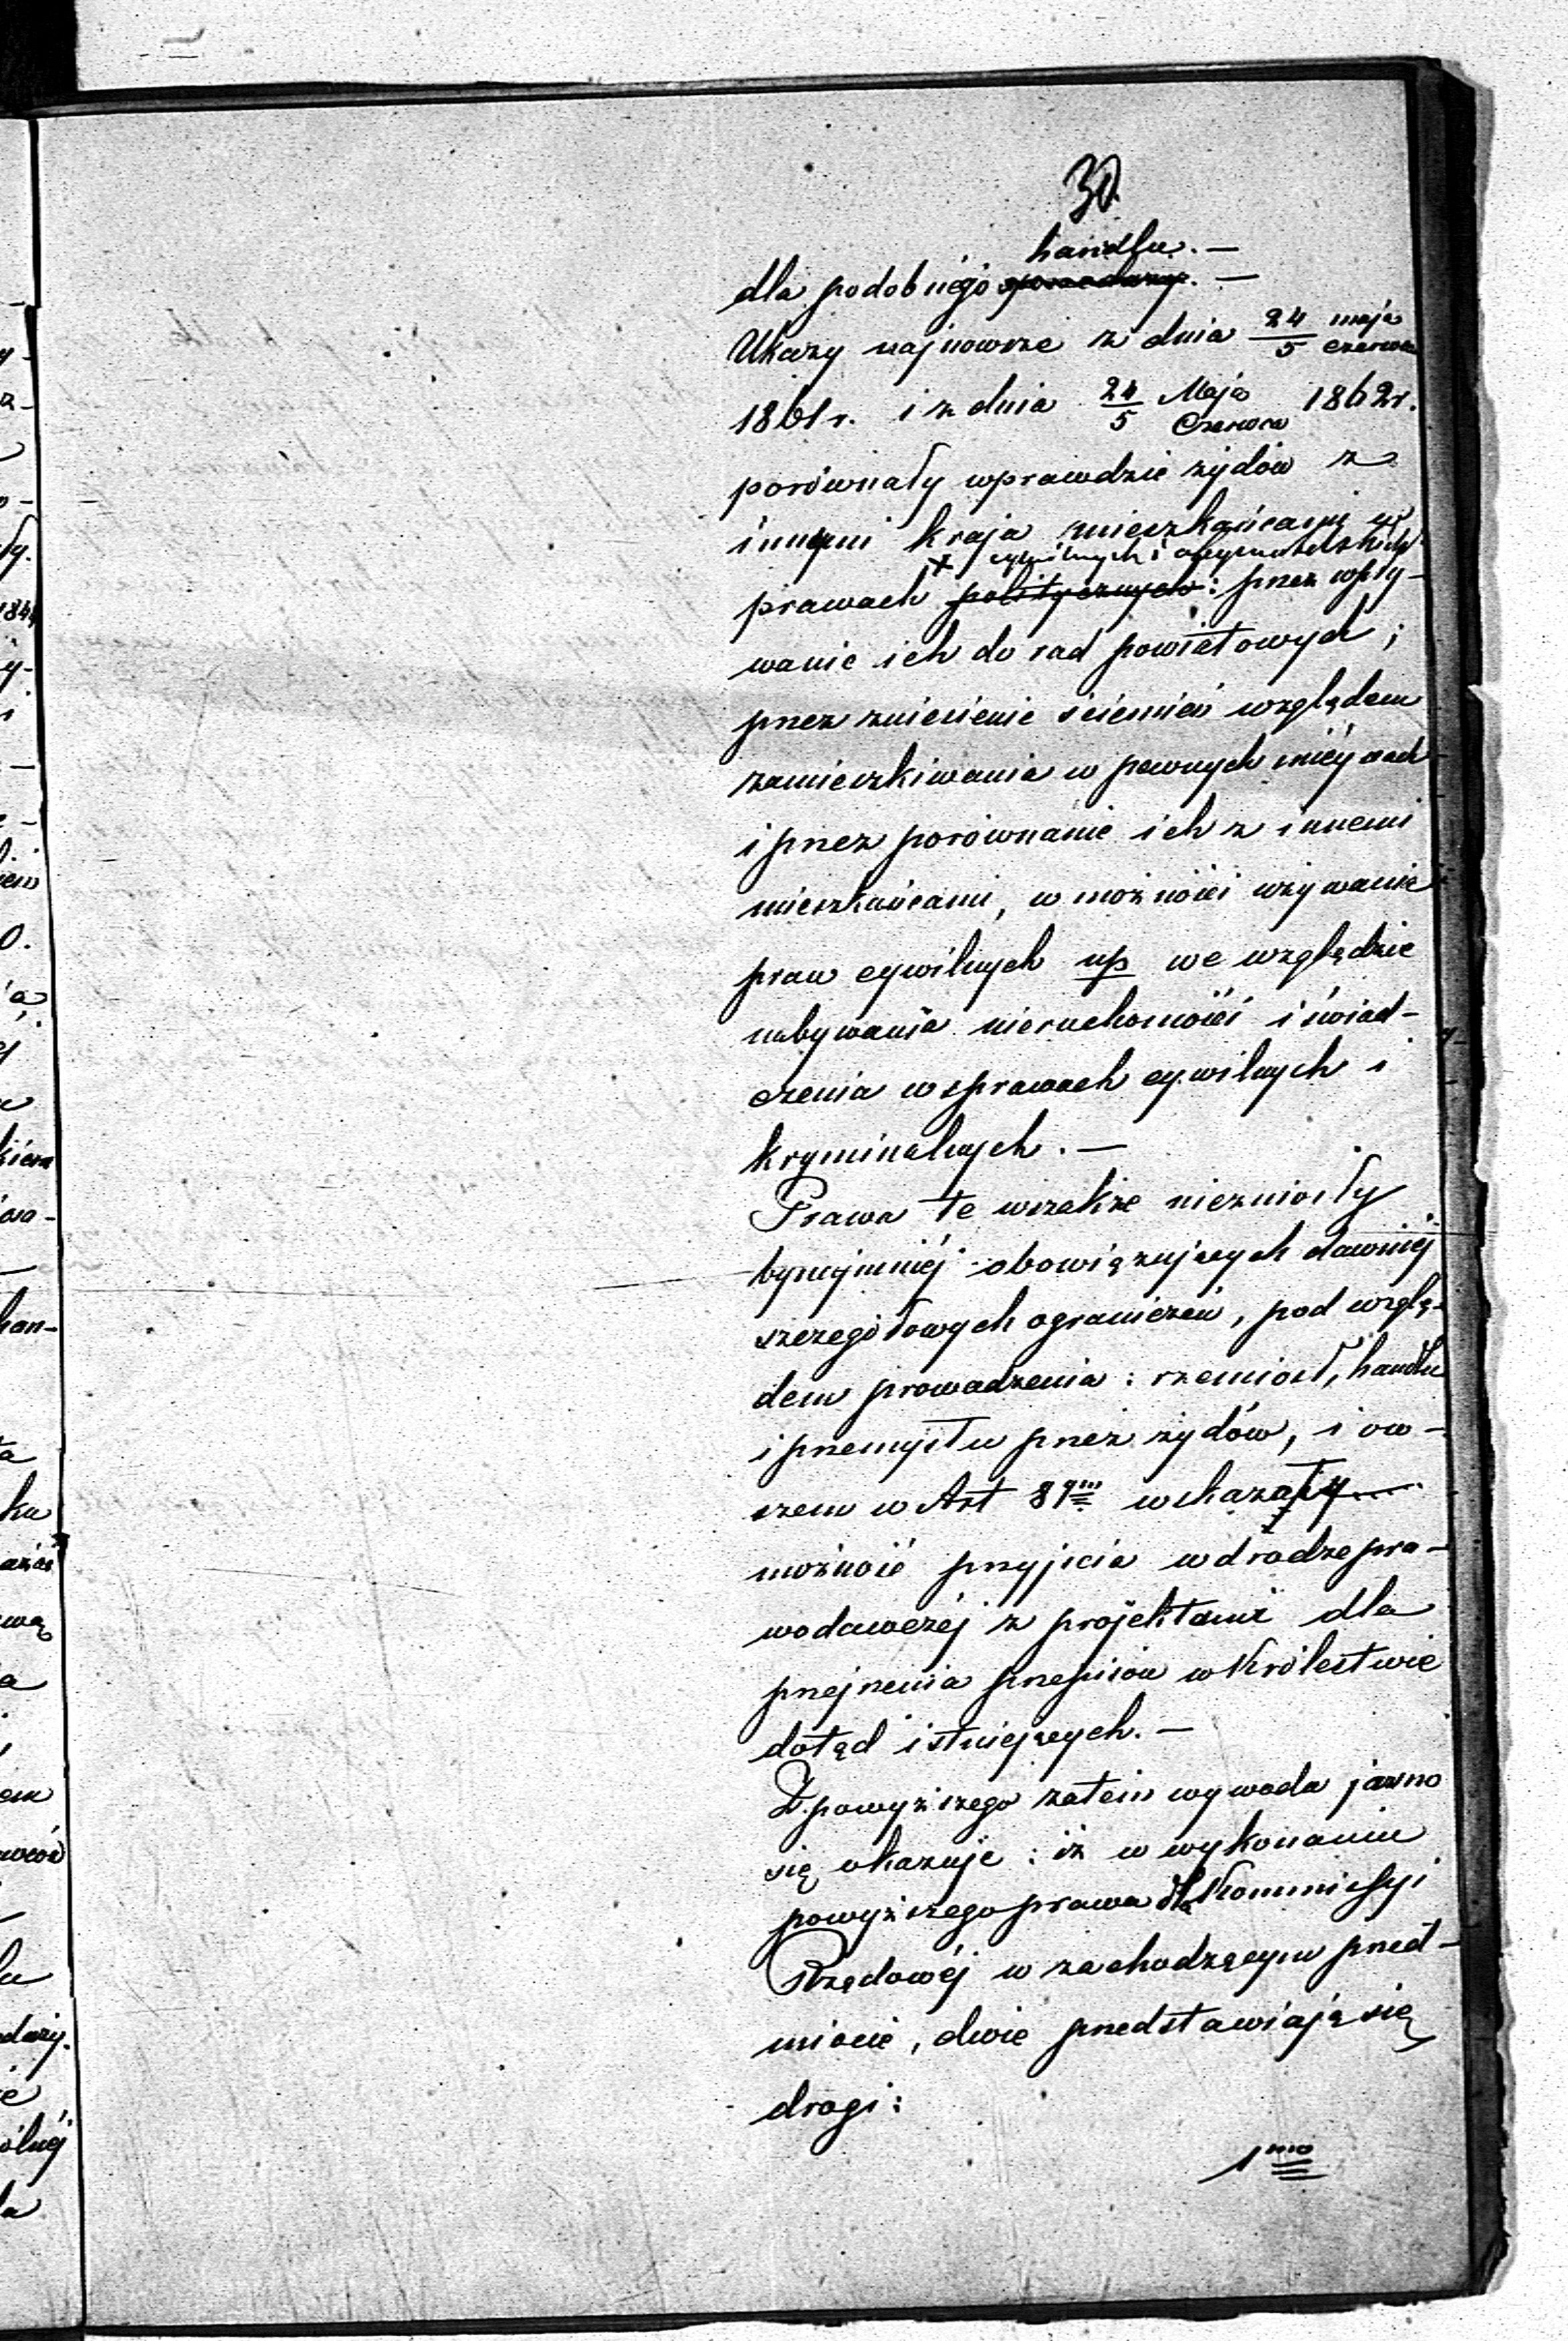 30.
handlu. —
dla podobnego sprzedaży. —
Ukazy najnowsze z dnia 24/5 maja czerwca
1861 r. i z dnia 24/5 Maja Czerwca 1862 r.
porównały wprawdzie żydów z
innymi kraju mieszkańcami w
+ cywilnych i obywatelskich
prawach politycznych: przez wpły-
wanie ich do rad powiatowych;
przez zniesienie ścieśnień względem
zamieszkiwania w pewnych miéyscach
i przez porównanie ich z innemi
mieszkańcami, w możności używania
praw cywilnych np we względzie
nabywania nieruchomości i świad-
czenia w sprawach cywilnych i
kryminalnych. —
Prawa te wszakże niezniosły
bynajmniéj obowiązujących dawniéj
szczegółowych ograniczeń, pod wzglę-
dem prowadzenia: rzemiosł, handlu
i przemysłu przez żydów, i ow-
szem w Art 89m wskazały
możność przyjścia w drodze pra-
wodawczéj z projektami dla
przejrzenia przepisów w Królestwie
dotąd istniejących. —
Z powyższego zatem wywodu jasno
się okazuje: iż w wykonaniu
powyższego prawa dla Kommissyi
Rządowéj w zachodzącym przed-
miocie, dwie przedstawiają się
drogi:
1mo